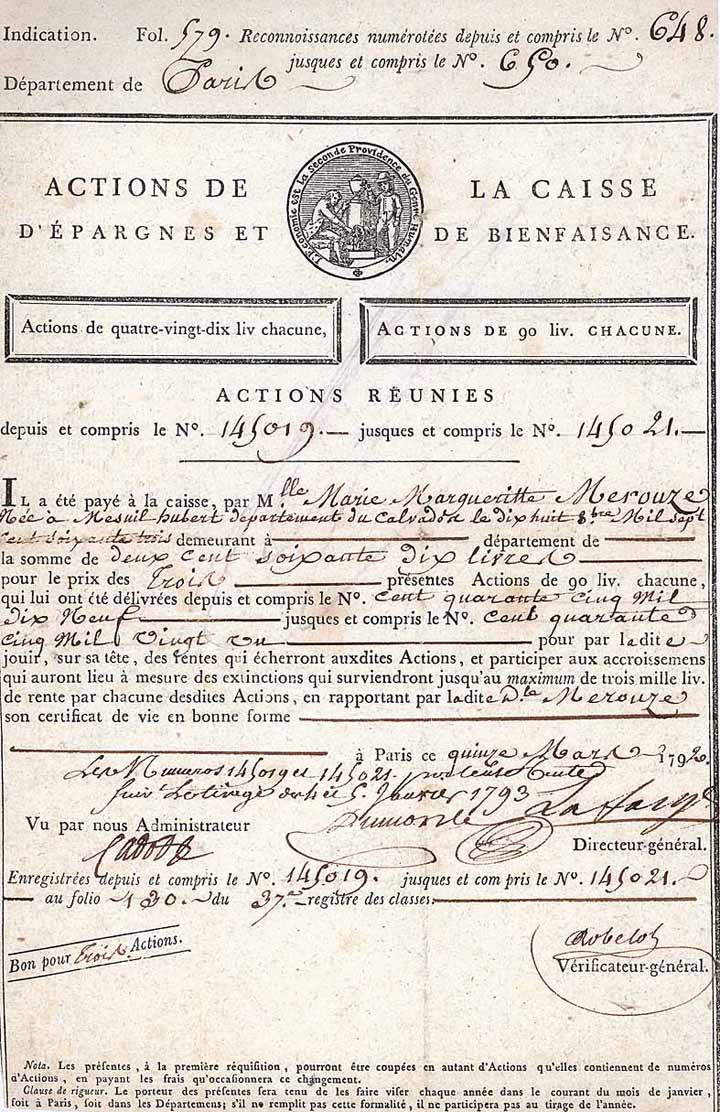 Indication. Fol. 579. Reconnoissances numérotées depuis et compris le N°. 648.
jusques et compris le N°. 650.
Département de Paris
L'Economie est la Seconde Providence du Genre Humain.
ACTIONS DE LA CAISSE
D'ÉPARGNES ET DE BIENFAISANCE.
Actions de quatre-vingt-dix liv chacune, ACTIONS DE 90 liv. CHACUNE.
ACTIONS RÉUNIES
depuis et compris le N°. 145019. jusques et compris le N°. 145021.
IL a été payé à la caisse, par Mlle Marie Margueritte Merouze
Née à Mesnil hubert département du Calvados le dix huit 8bre Mil sept
Cent soixante trois demeurant à département de
la somme de deux cent soixante dix livres
pour le prix des Trois présentes Actions de 90 liv. chacune,
qui lui ont été délivrées depuis et compris le N°. Cent quarante Cinq Mil
dix Neuf jusques et compris le N°. Cent quarante
Cinq Mil Vingt Un pour par ladite
jouir, sur sa tête, des rentes qui écherront auxdites Actions, et participer aux accroissemens
qui auront lieu à mesure des extinctions qui surviendront jusqu'au maximum de trois mille liv.
de rente par chacune desdites Actions, en rapportant par ladite Dlle Merouze
son certificat de vie en bonne forme
à Paris ce quinze Mars 1792.
Les Numeros 145019 et 145021. portent rentes
suivt Le tirage des 4 et 5. Janvier 1793
Vu par nous Administrateur Lafarge
Directeur-général.
Enregistrées depuis et compris le N°. 145019. jusques et compris le N°. 145021.
au folio 130. du 37.me registre des classes.
Bon pour Trois Actions.
Robelot
Vérificateur-général.
Nota. Les présentes, à la première réquisition, pourront être coupées en autant d'Actions qu'elles contiennent de numéros
d'Actions, en payant les frais qu'occasionnera ce changement.
Clause de rigueur. Le porteur des présentes sera tenu de les faire viser chaque année dans le courant du mois de janvier,
soit à Paris, soit dans les Départemens; s'il ne remplit pas cette formalité, il ne participera pas au tirage de l'année.